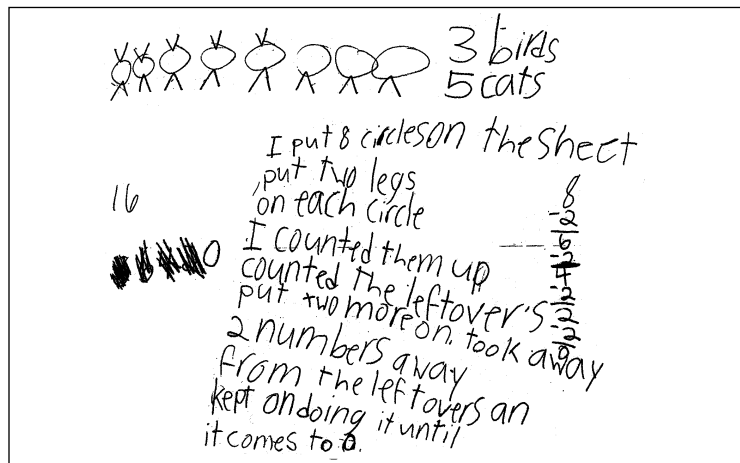 3 birds
5 cats
I put 8 circles on the sheet
put two legs
on each circle
I counted them up
counted the leftover's
put two more on. took away
2 numbers away
from the leftovers an
kept on doing it until
it comes to 0.
16
0
8
-2
6
-2
4
-2
2
-2
0